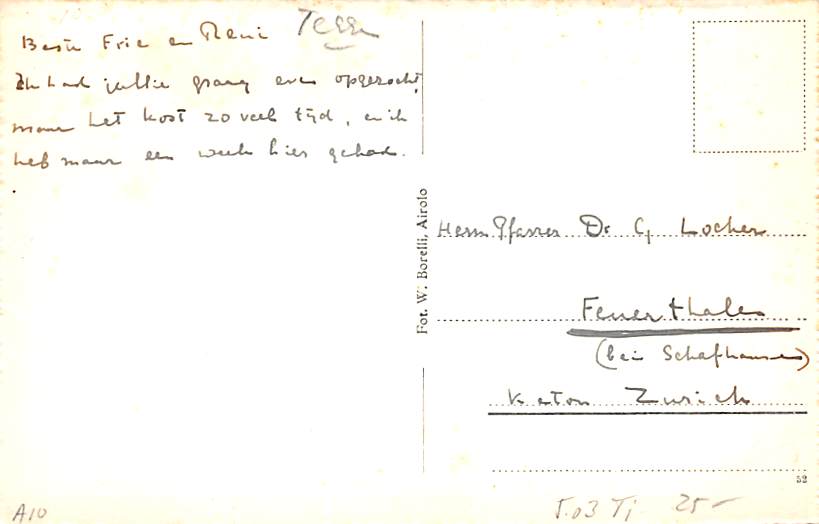 Beste Frie en Reni Tessin
Ik had jullie graag even opgezocht,
maar het kost zo veel tijd, en ik
heb maar een week hier gehad.
Fot. W. Borelli, Airolo
Herrn Pfarrer Dr G Locher
Feuerthalen
(bei Schafhausen)
Kanton Zürich
52
A10
5.03 Ti 25-